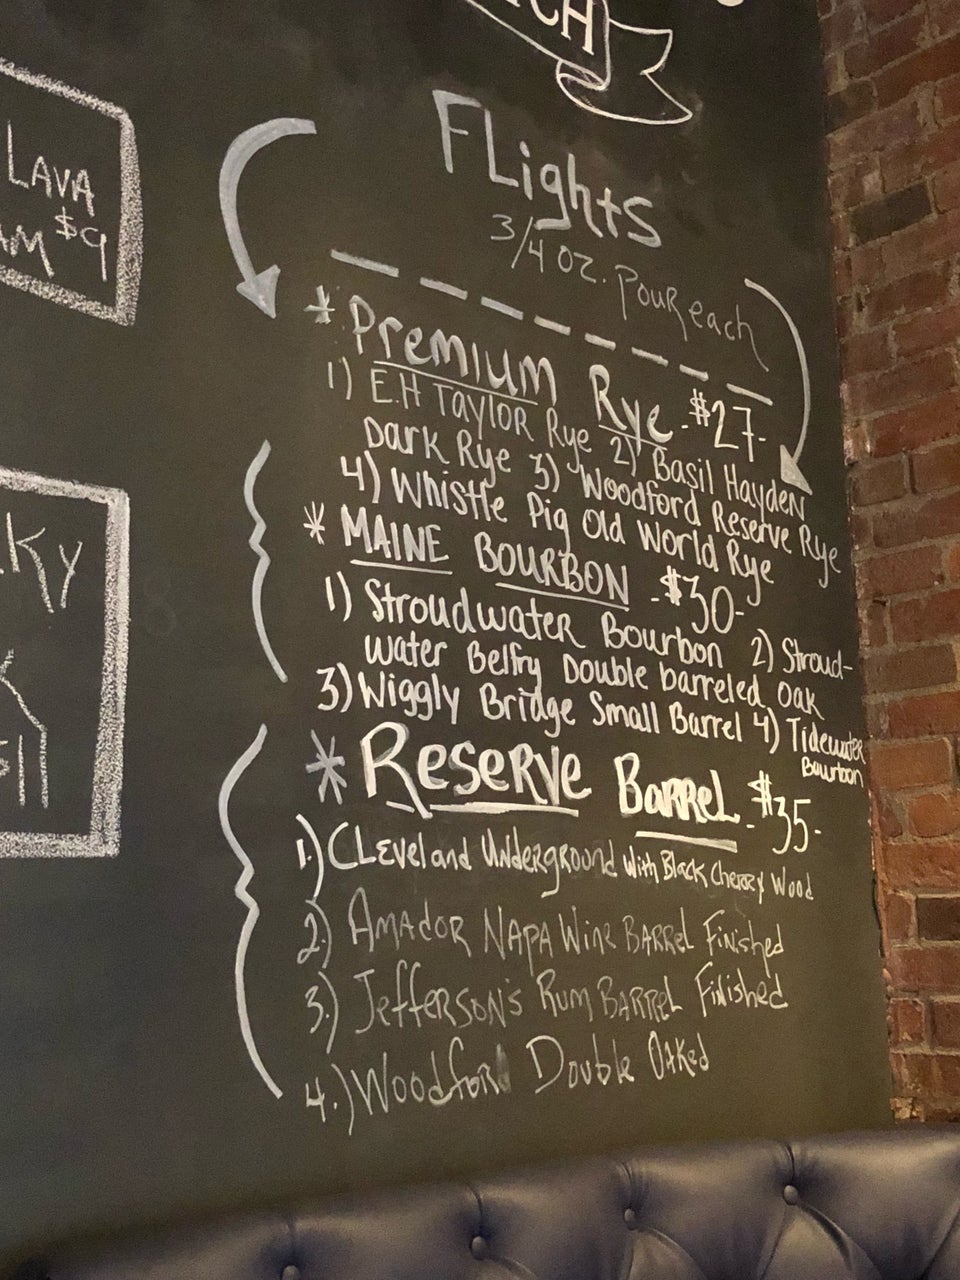 LAVA
$9
Flights
3/4 oz. Pour each
* Premium Rye -$27-
1) E.H Taylor Rye 2) Basil Hayden
Dark Rye 3) Woodford Reserve Rye
4) Whistle Pig Old World Rye
* MAINE BOURBON -$30-
1) Stroudwater Bourbon 2) Stroud-
water Belfry Double barreled Oak
3) Wiggly Bridge Small Barrel 4) Tidewater
Bourbon
* Reserve Barrel -$35-
1.) Cleveland Underground with Black Cherry Wood
2.) Amador Napa Wine Barrel Finished
3.) Jefferson's Rum Barrel Finished
4.) Woodford Double Oaked